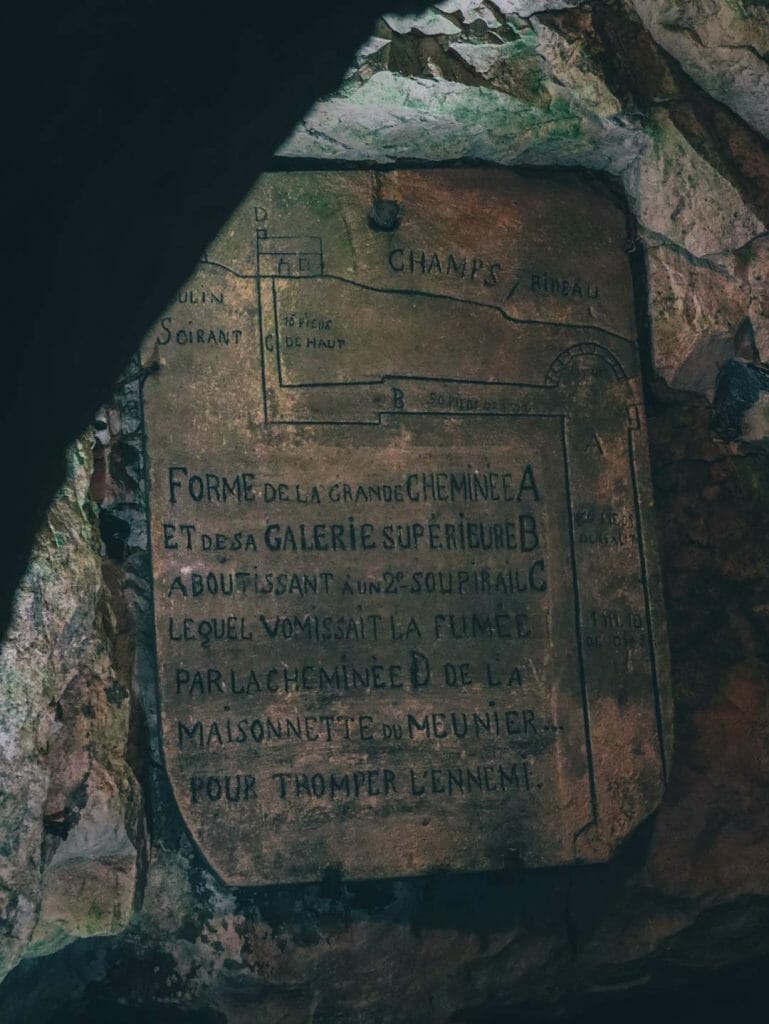 D
CHAMPS / RIDEAU
ULIN
SOIRANT
C
16 PIEDS
DE HAUT
B
50 PIEDS DE
A
FORME DE LA GRANDE CHEMINÉE A
ET DE SA GALERIE SUPÉRIEURE B
ABOUTISSANT À UN 2E SOUPIRAIL C
LEQUEL VOMISSAIT LA FUMÉE
PAR LA CHEMINÉE D DE LA
MAISONNETTE DU MEUNIER...
POUR TROMPER L'ENNEMI.